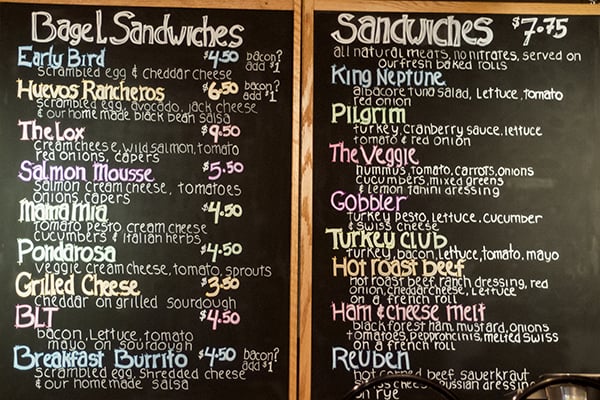 Bagel Sandwiches
Early Bird $4.50 bacon? add $1
scrambled egg & cheddar cheese
Huevos Rancheros $6.50 bacon? add $1
scrambled egg, avocado, jack cheese
& our home made black bean salsa
The Lox $9.50
cream cheese, wild salmon, tomato
red onions, capers
Salmon Mousse $5.50
salmon cream cheese, tomatoes
onions, capers
Mama Mia $4.50
tomato pesto cream cheese
cucumbers & italian herbs
Pondarosa $4.50
veggie cream cheese, tomato, sprouts
Grilled Cheese $3.50
cheddar on grilled sourdough
BLT $4.50
bacon, lettuce, tomato
mayo on sourdough
Breakfast Burrito $4.50 bacon? add $1
scrambled egg, shredded cheese
& our homemade salsa
Sandwiches $7.75
all natural meats, no nitrates, served on
our fresh baked rolls
King Neptune
albacore tuna salad, lettuce, tomato
red onion
Pilgrim
turkey, cranberry sauce, lettuce
tomato & red onion
The Veggie
hummus, tomato, carrots, onions
cucumbers, mixed greens
& lemon tanini dressing
Gobbler
turkey pesto, lettuce, cucumber
& swiss cheese
Turkey Club
turkey, bacon, lettuce, tomato, mayo
Hot Roast Beef
hot roast beef, ranch dressing, red
onion, cheddar cheese, lettuce
on a french roll
Ham & cheese melt
black forest ham, mustard, onions
tomatoes, pepproncinis, melted swiss
on a french roll
Reuben
hot corned beef, sauerkraut
swiss cheese, russian dressing
on rye